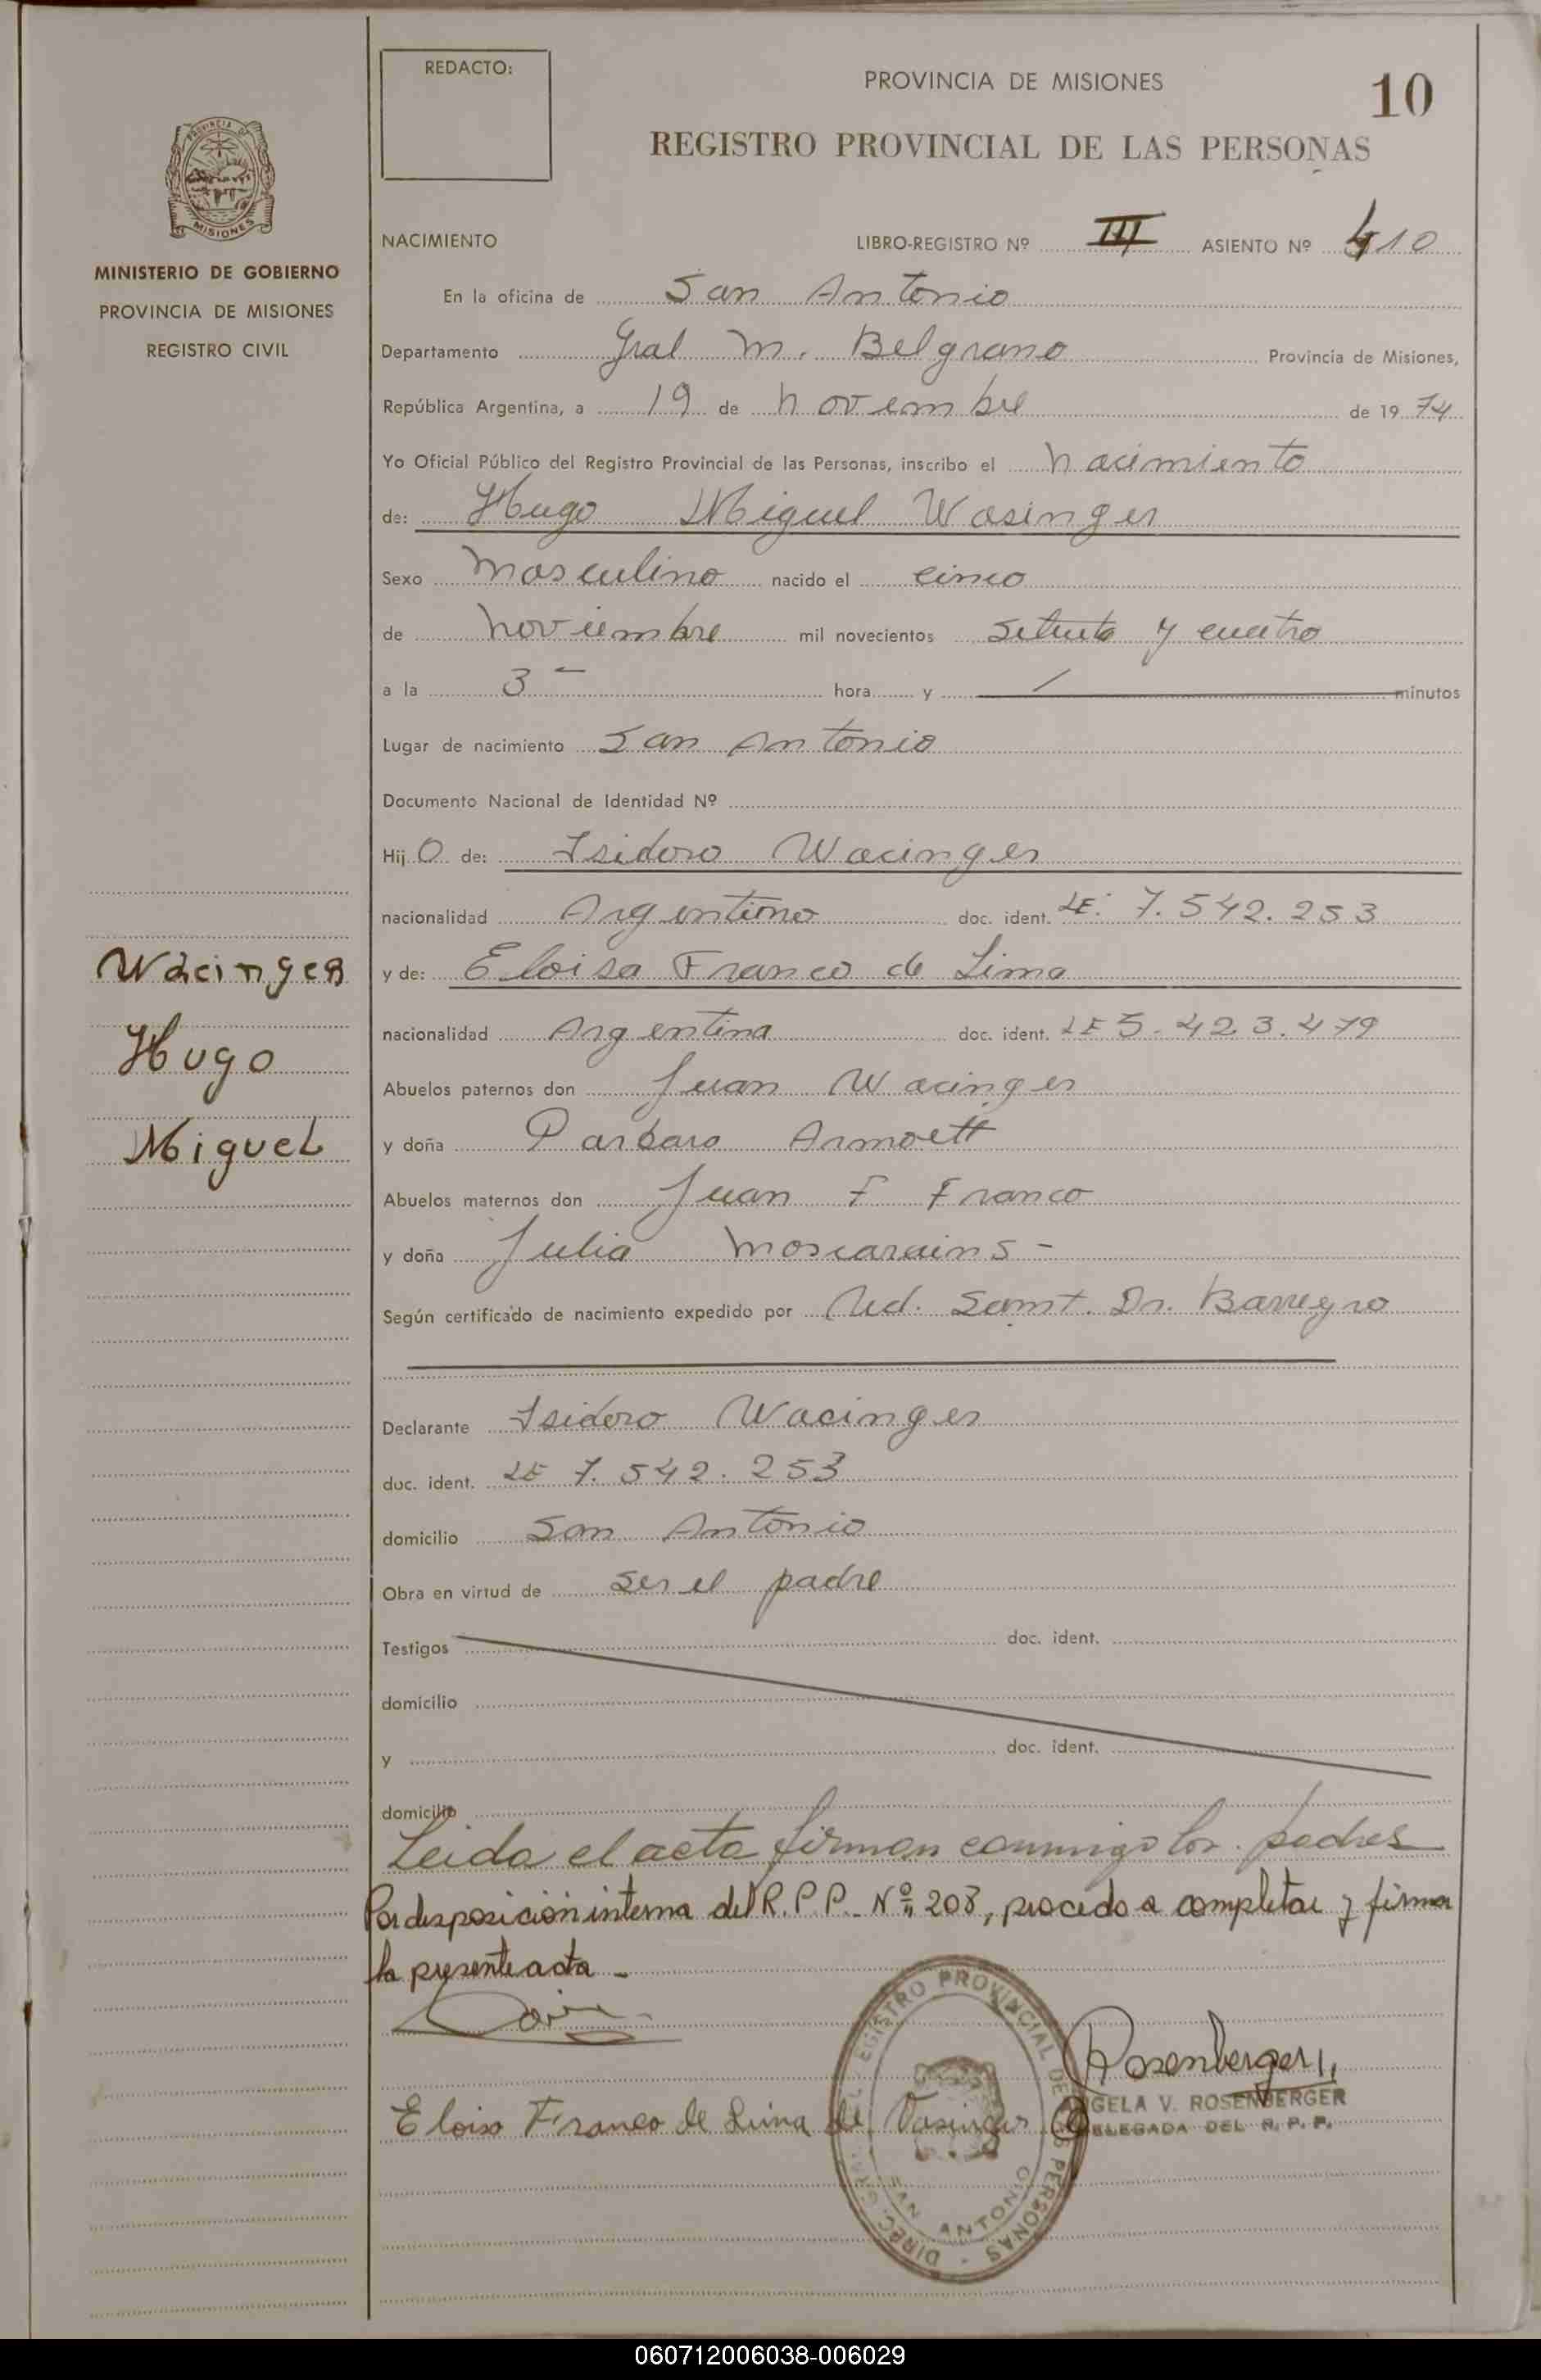 REDACTO:
PROVINCIA DE MISIONES
10
REGISTRO PROVINCIAL DE LAS PERSONAS
PROVINCIA DE
MISIONES
MINISTERIO DE GOBIERNO
PROVINCIA DE MISIONES
REGISTRO CIVIL
NACIMIENTO LIBRO-REGISTRO Nº III ASIENTO Nº 410
En la oficina de San Antonio
Departamento Gral M. Belgrano Provincia de Misiones,
República Argentina, a 19 de novembre de 19 74
Yo Oficial Público del Registro Provincial de las Personas, inscribo el nacimiento
de: Hugo Miguel Wasinger
Sexo masculino nacido el cinco
de noviembre mil novecientos setenta y cuatro
a la 3 hora y minutos
Lugar de nacimiento San Antonio
Documento Nacional de Identidad Nº
Hij O de: Isidoro Wacinger
nacionalidad Argentino doc. ident. LE. 7.542.253
y de: Eloisa Franco de Lima
nacionalidad Argentina doc. ident. LE 5.423.479
Abuelos paternos don Juan Wacinger
y doña Barbara
Abuelos maternos don Juan F Franco
y doña Julia
Según certificado de nacimiento expedido por Dr. Barreyro
Wacinger
Hugo
Miguel
Declarante Isidoro Wacinger
doc. ident. LE 7.542.253
domicilio San Antonio
Obra en virtud de ser el padre
Testigos doc. ident.
domicilio
y doc. ident.
domicilio
Leida el acta firman conmigo los padres
Por disposición interna del R.P.P. Nº 208, procedo a completar y firmar
la presente acta -
Rosenberger
GELA V. ROSENBERGER
DELEGADA DEL R. P. P.
Eloisa Franco de Lima de Vasinger
DIREC. GRAL. REGISTRO PROVINCIAL DE LAS PERSONAS
SAN ANTONIO
060712006038-006029